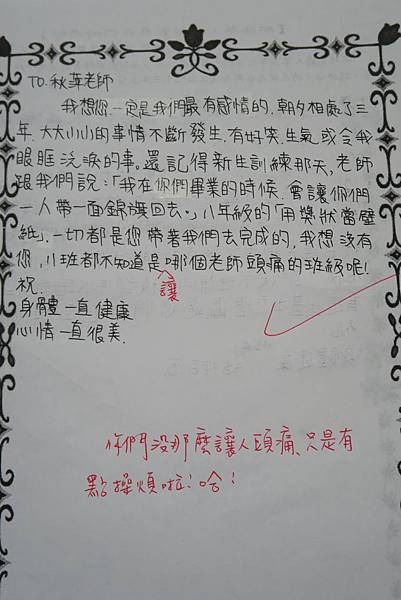 TO.秋華老師
我想您一定是我們最有感情的.朝夕相處了三
年.大大小小的事情不斷發生.有好笑.生氣或令我
眼眶泛淚的事。還記得新生訓練那天,老師
跟我們說:「我在你們畢業的時候.會讓你們
一人帶一面錦旗回去。」八年級的「用獎狀當壁
紙」.一切都是您帶著我們去完成的,我想沒有
您,八班都不知道是哪個老師頭痛的班級呢!
讓
祝.
身體一直健康
心情一直很美.
你們沒那麼讓人頭痛、只是有
點操煩啦!哈!